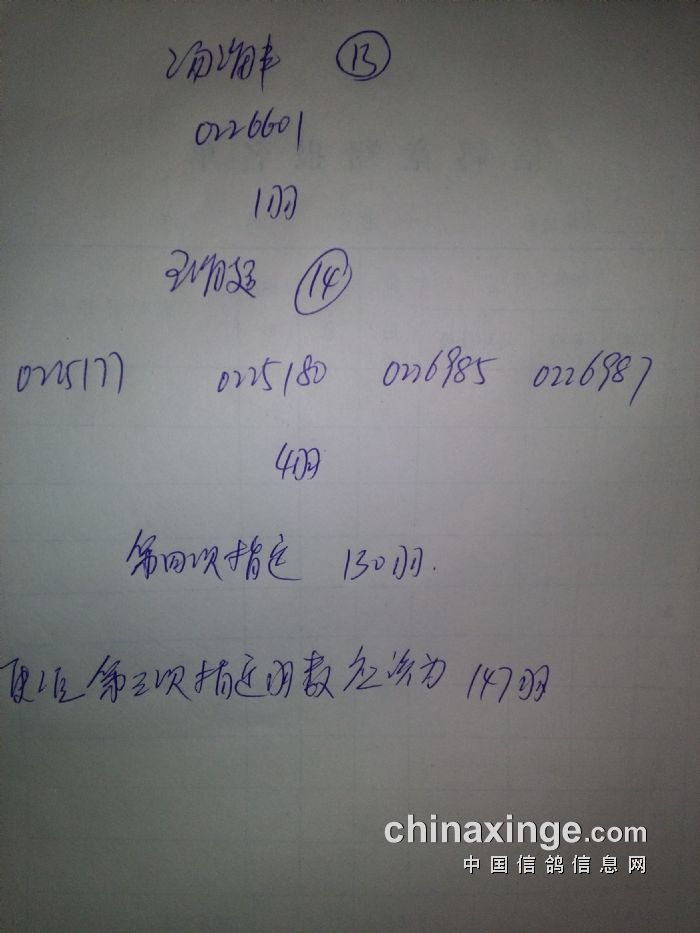 ⑬
0226601
1羽
⑭
0225177 0225180 0226985 0226987
4羽
第四次指定 130羽.
更正 第三次指定羽数应该为 147羽
chinaxinge.com
中国信鸽信息网